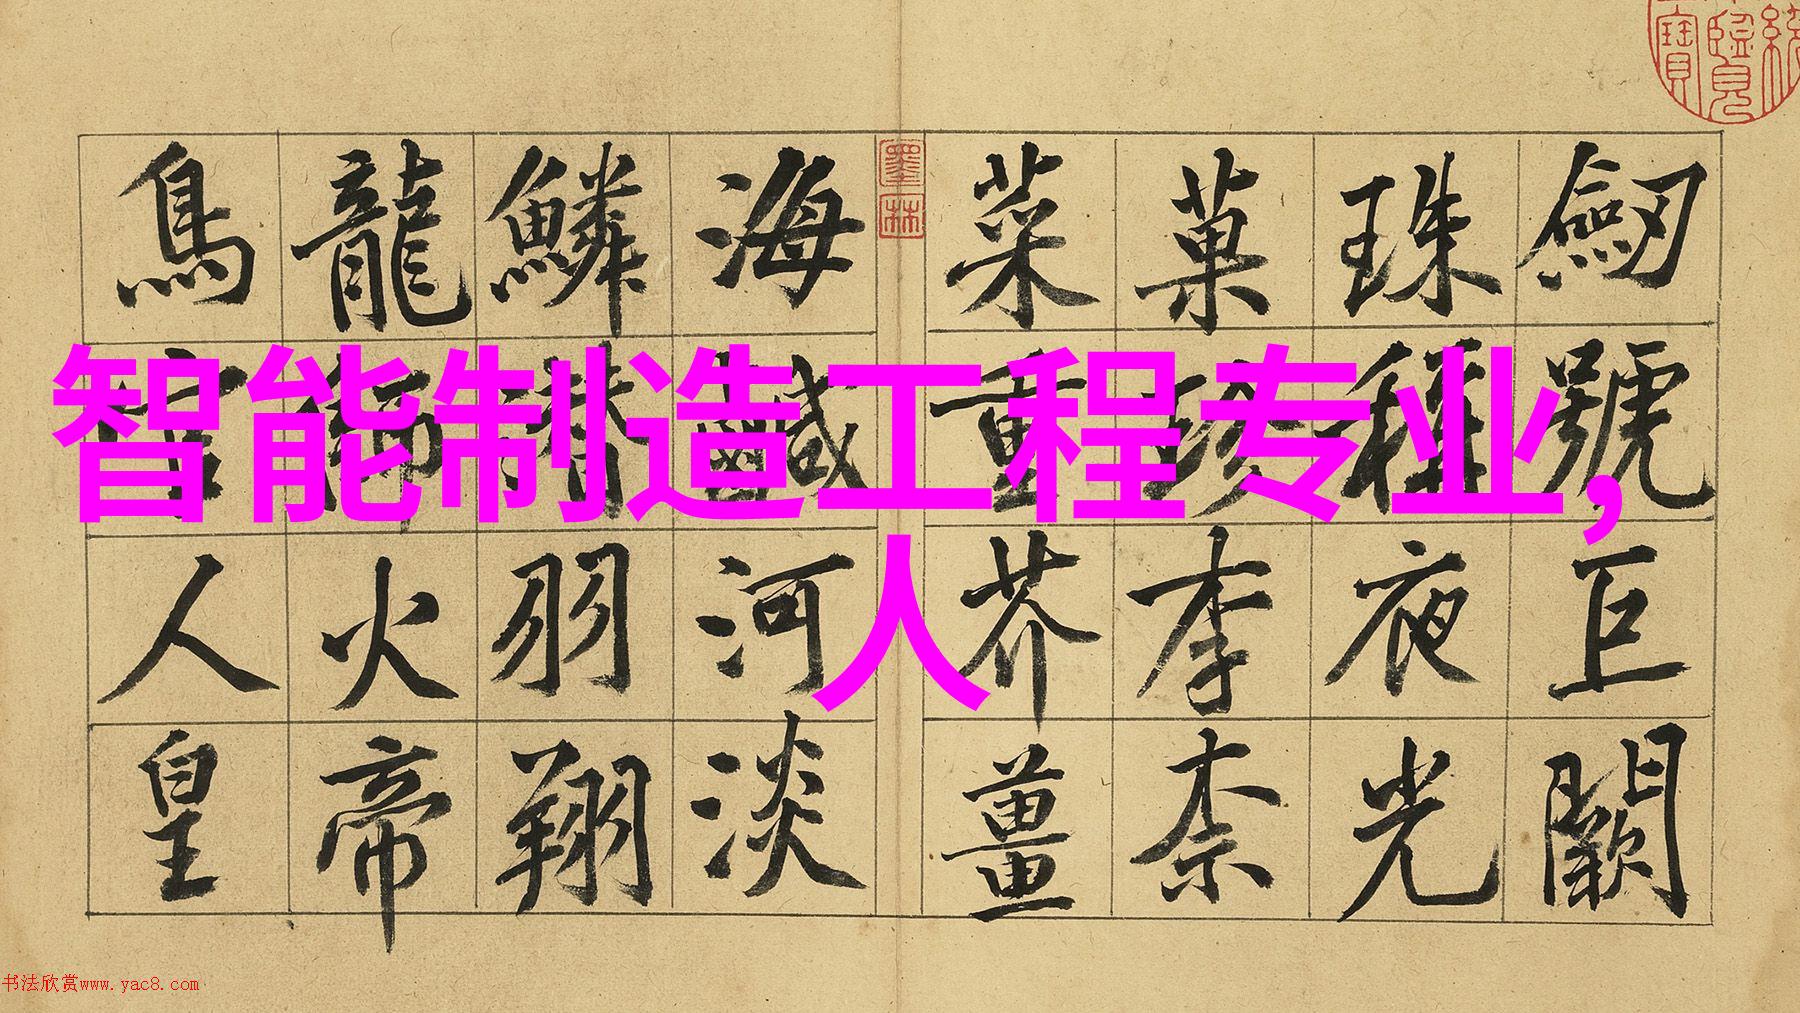 智能制造工程专业,
人
劔號巨闕
珠稱夜光
菓珍李柰
菜重芥薑
海鹹河淡
鱗潛羽翔
龍師火帝
鳥官人皇
墨林
书法欣赏www.yac8.com